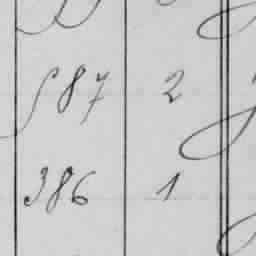 587 2
386 1